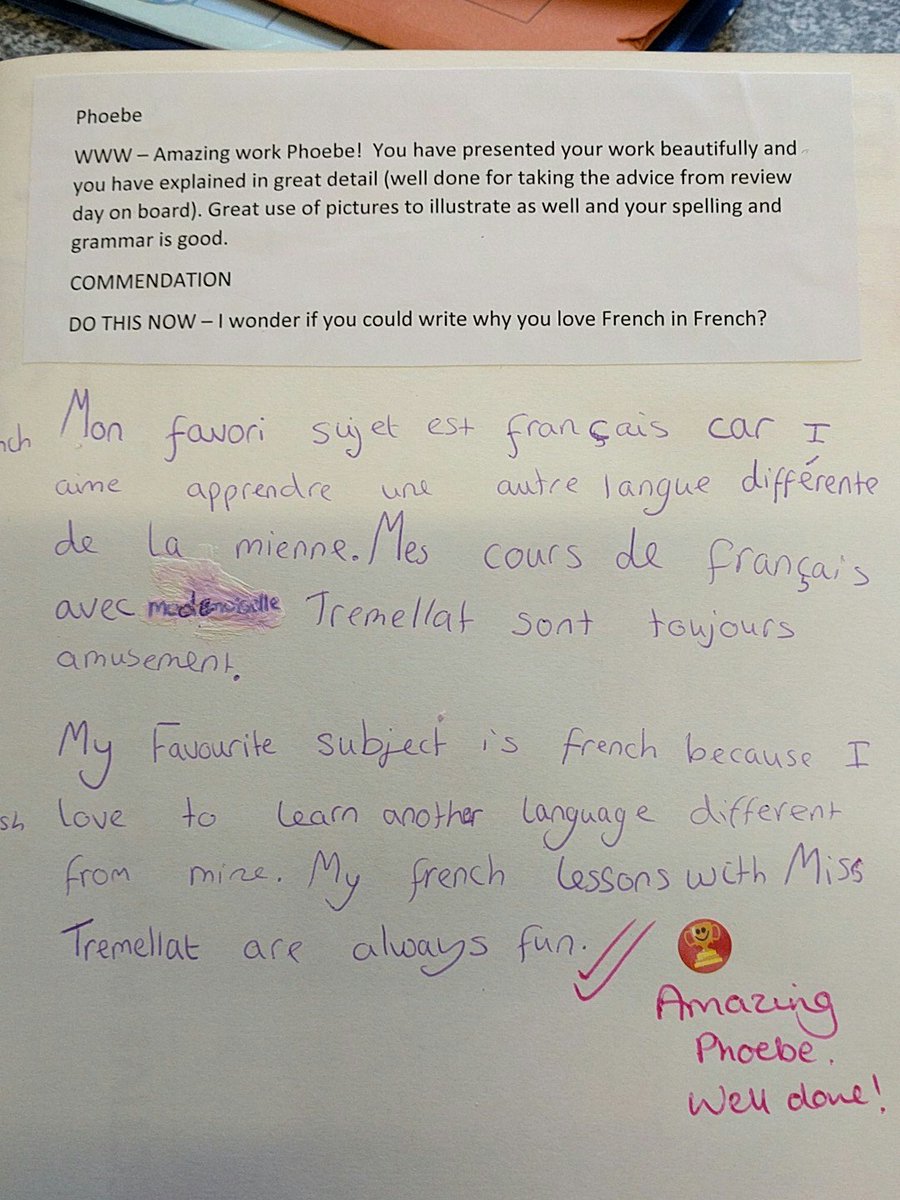 Phoebe
WWW – Amazing work Phoebe! You have presented your work beautifully and
you have explained in great detail (well done for taking the advice from review
day on board). Great use of pictures to illustrate as well and your spelling and
grammar is good.
COMMENDATION
DO THIS NOW – I wonder if you could write why you love French in French?
Mon favori sujet est français car I
aime apprendre une autre langue différente
de la mienne. Mes cours de français
avec Tremellat sont toujours
amusement.
My Favourite subject is french because I
love to learn another language different
from mine. My french lessons with Miss
Tremellat are always fun.
Amazing
Phoebe.
Well done!